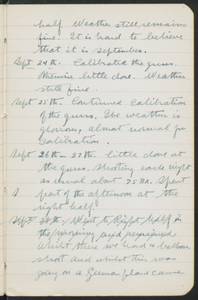 half. Weather still remains
fine. It is hard to believe
that it is September.
Sept 24th. Calibrated the guns.
little done. Weather
still fine.
Sept 25th. Continued calibration
of the guns. The weather is
glorious, almost normal for
Calibration.
Sept 26th - 27th. little done at
the guns. Shooting each night
as usual about 75 Rds. Spent
part of the afternoon at the
right half.
Sept 28th. Went to Right half in
the morning and
Whilst there we had a balloon
shoot and whilst this was
going on a German plane came